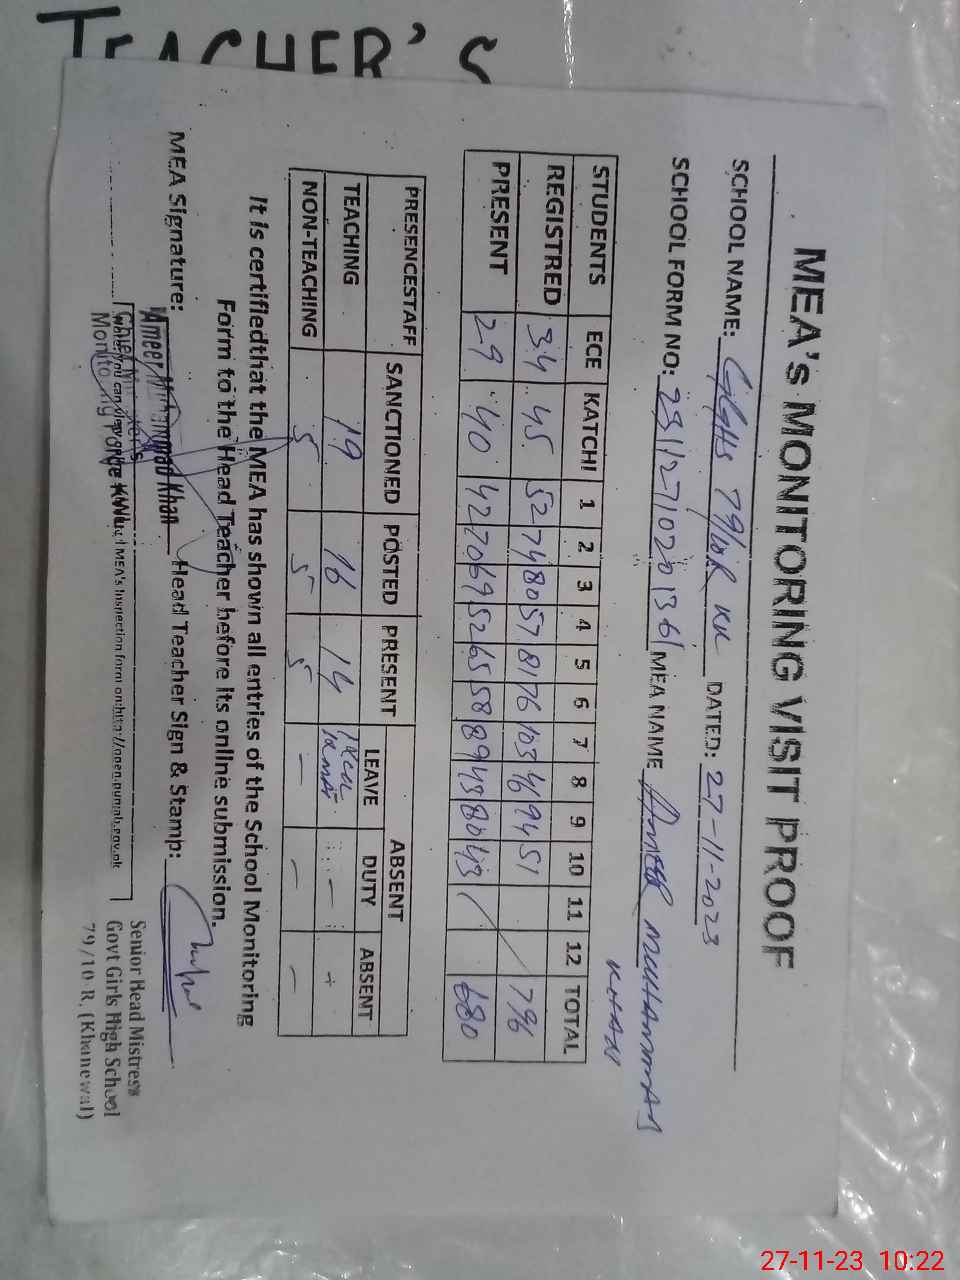 TEACHER'S
MEA's MONITORING VISIT PROOF
SCHOOL NAME: GGHS 79/10R KWL DATED: 27-11-2023
SCHOOL FORM NO: MEA NAME AMEER MUHAMMAD
KHAN
STUDENTS ECE KATCHI 1 2 3 4 5 6 7 8 9 10 11 12 TOTAL
REGISTRED 34 45 52 74 80 57 81 76 103 46 94 51 796
PRESENT 29 40 42 70 69 52 65 58 89 43 80 43 680
PRESENCESTAFF SANCTIONED POSTED PRESENT ABSENT
LEAVE DUTY ABSENT
TEACHING 19 16 14 - -
NON-TEACHING 5 5 5 - - -
It is certifiedthat the MEA has shown all entries of the School Monitoring
Form to the Head Teacher before its online submission.
MEA Signature: Head Teacher Sign & Stamp:
Ameer Muhammad Khan
Monitoring Force KWL
where you can view your MEA's Inspection form on:
Senior Head Mistress
Govt Girls High School
79/10-R, (Khanewal)
27-11-23 10:22